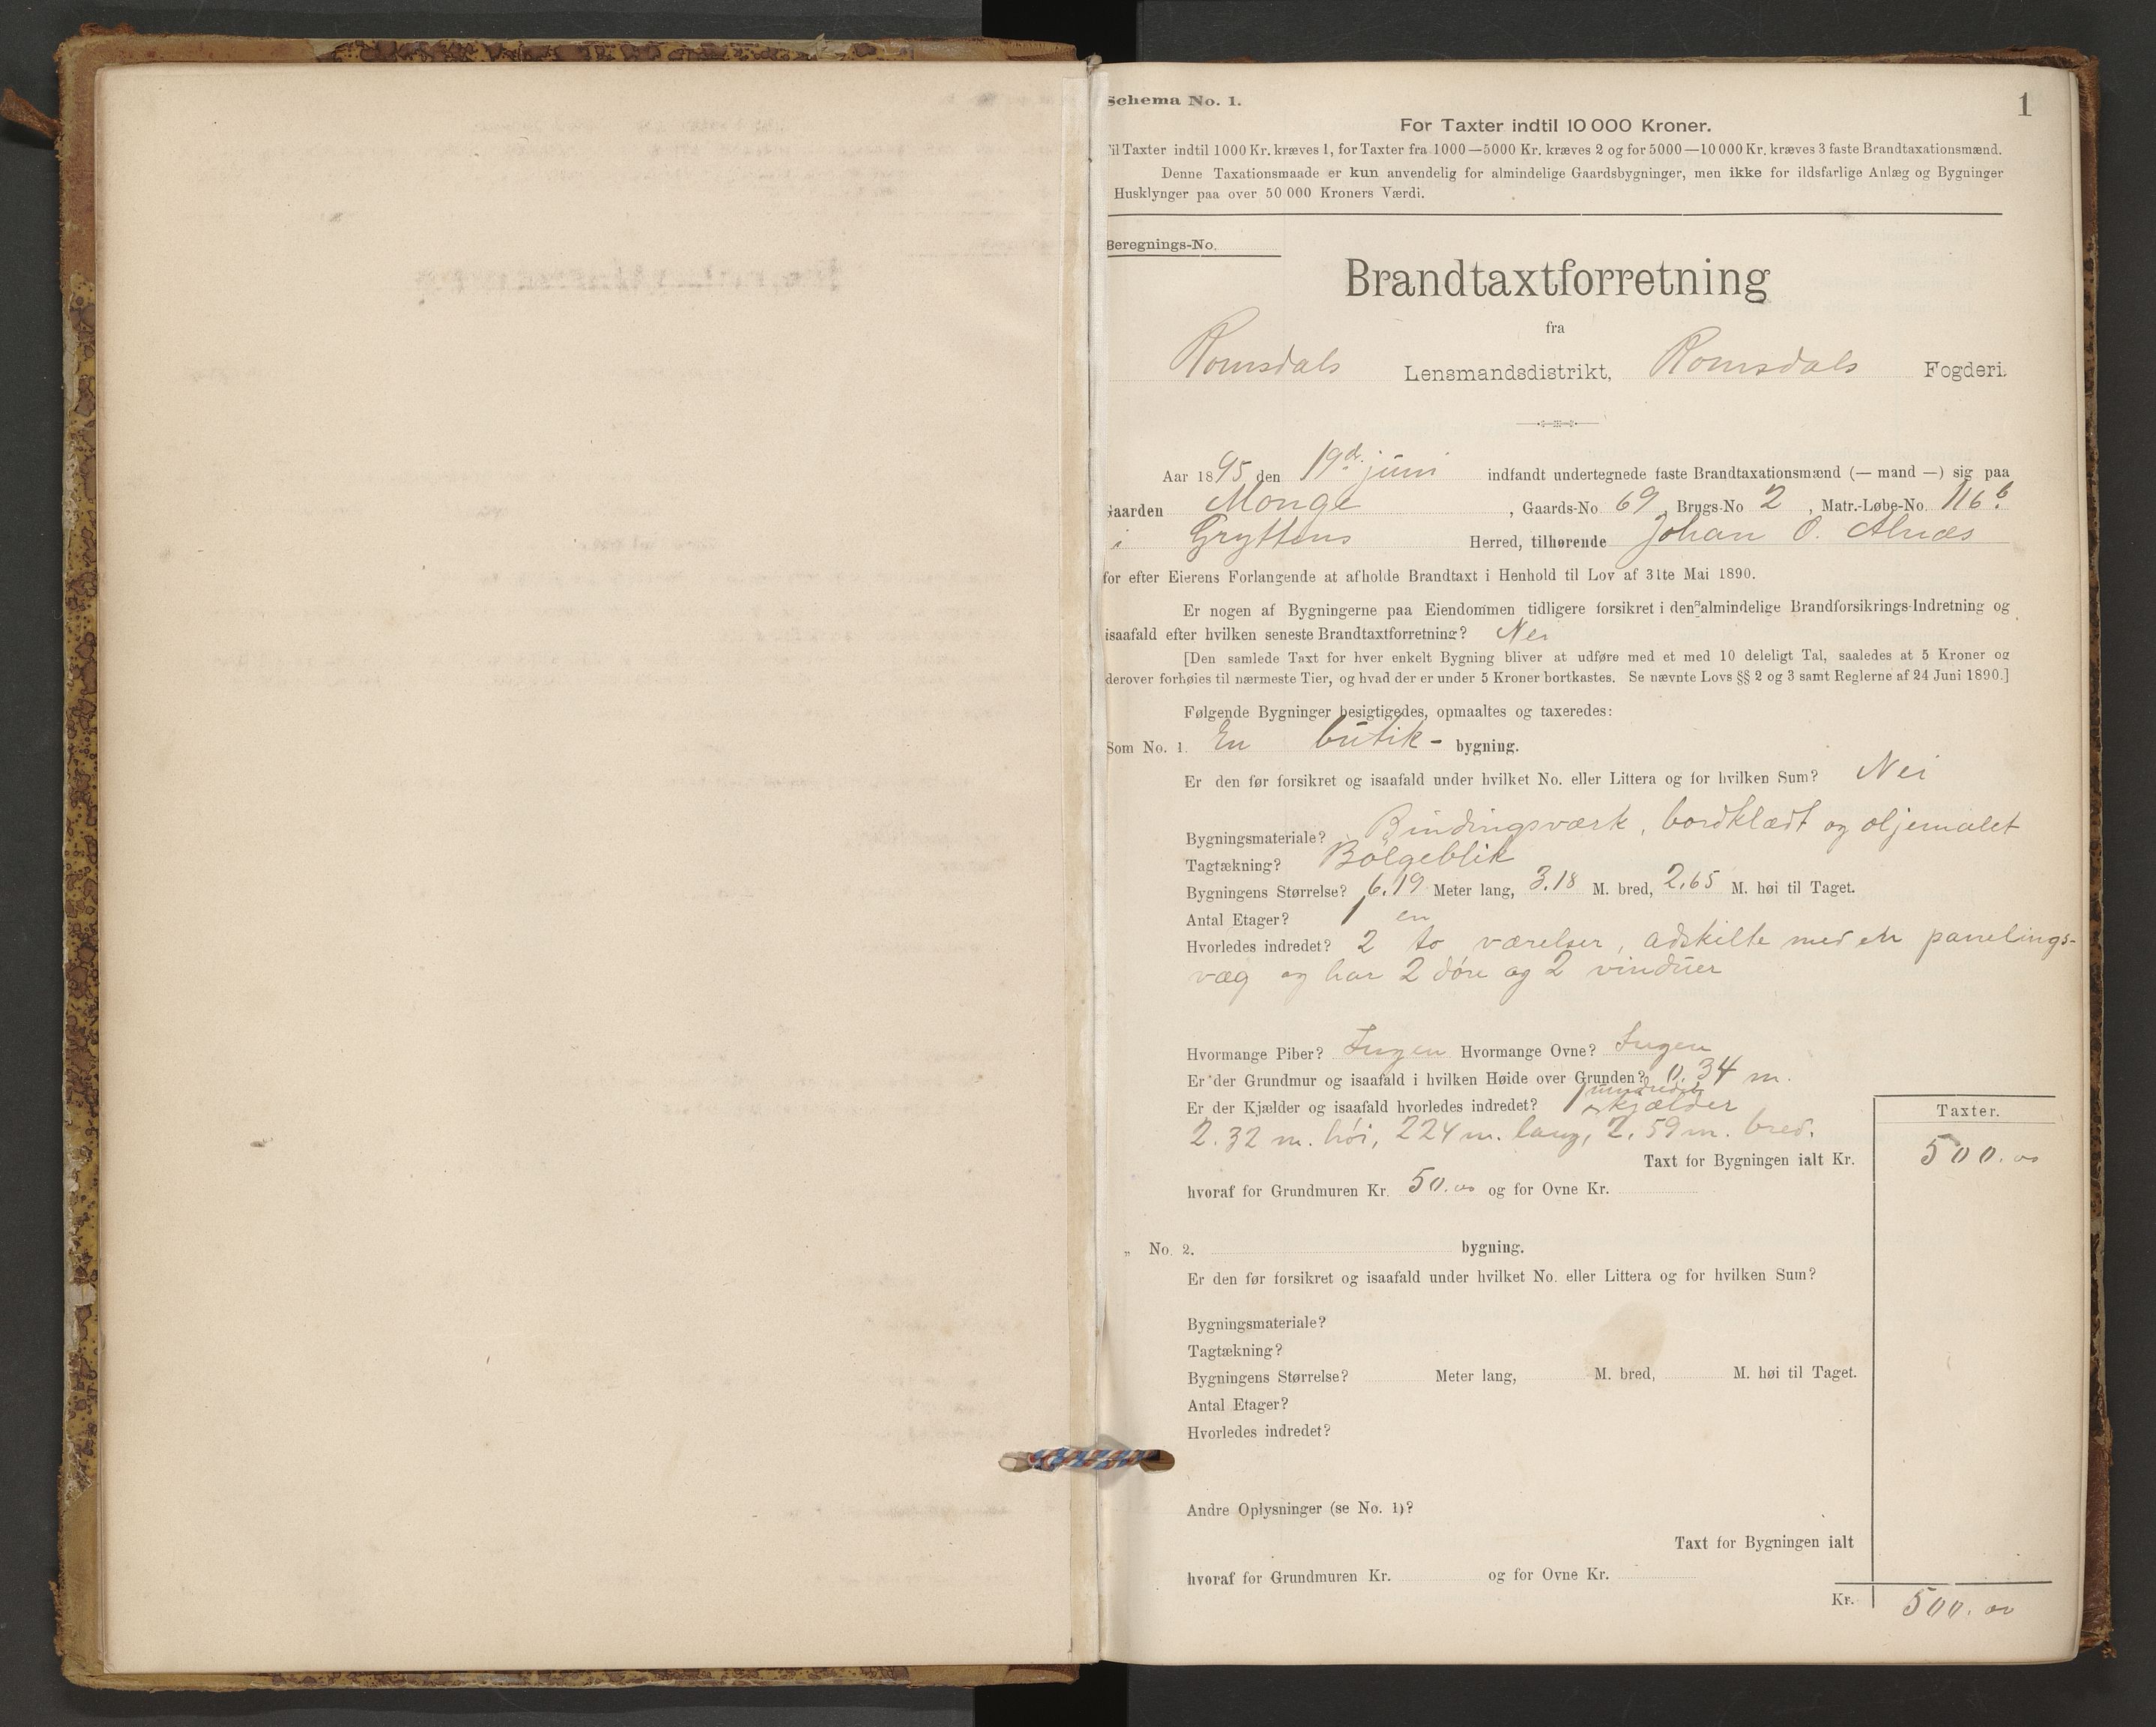 1
Schema No. 1.
For Taxter indtil 10 000 Kroner.
Til Taxter indtil 1000 Kr. kræves 1, for Taxter fra 1000—5000 Kr. kræves 2 og for 5000—10 000 Kr. kræves 3 faste Brandtaxationsmænd.
Denne Taxationsmaade er kun anvendelig for almindelige Gaardsbygninger, men ikke for ildsfarlige Anlæg og Bygninger
Husklynger paa over 50 000 Kroners Værdi.
Beregnings-No.
Brandtaxtforretning
fra
Romsdals Lensmandsdistrikt, Romsdals Fogderi.
Aar 1895 den 19de juni indfandt undertegnede faste Brandtaxationsmænd (— mand —) sig paa
Gaarden Monge, Gaards-No 69, Brugs-No 2, Matr.-Løbe-No. 116 b.
i Gryttens Herred, tilhørende Johan O. Alnæs
for efter Eierens Forlangende at afholde Brandtaxt i Henhold til Lov af 31te Mai 1890.
Er nogen af Bygningerne paa Eiendommen tidligere forsikret i den almindelige Brandforsikrings-Indretning og
isaafald efter hvilken seneste Brandtaxtforretning? Nei
[Den samlede Taxt for hver enkelt Bygning bliver at udføre med et med 10 deleligt Tal, saaledes at 5 Kroner og
derover forhøies til nærmeste Tier, og hvad der er under 5 Kroner bortkastes. Se nævnte Lovs §§ 2 og 3 samt Reglerne af 24 Juni 1890.]
Følgende Bygninger besigtigedes, opmaaltes og taxeredes:
Som No. 1. En butik- bygning.
Er den før forsikret og isaafald under hvilket No. eller Littera og for hvilken Sum? Nei
Bygningsmateriale? Bindingsværk, bordklædt og oljemalet
Tagtækning? Bölgeblik
Bygningens Størrelse? 6.19 Meter lang, 3.18 M. bred, 2.65 M. høi til Taget.
Antal Etager? 1 en
Hvorledes indredet? 2 to værelser, adskilte med en panelings-
væg og har 2 døre og 2 vinduer
Hvormange Piber? Ingen Hvormange Ovne? Ingen
Er der Grundmur og isaafald i hvilken Høide over Grunden? 0.34 m.
Er der Kjælder og isaafald hvorledes indredet? 1 uindredet kjælder
2.32 m. høi, 2.24 m. lang, 2.59 m. bred.
Taxter.
Taxt for Bygningen ialt Kr. 500.00
hvoraf for Grundmuren Kr. 50.00 og for Ovne Kr.
„ No. 2. bygning.
Er den før forsikret og isaafald under hvilket No. eller Littera og for hvilken Sum?
Bygningsmateriale?
Tagtækning?
Bygningens Størrelse? Meter lang, M. bred, M. høi til Taget.
Antal Etager?
Hvorledes indredet?
Andre Oplysninger (se No. 1)?
Taxt for Bygningen ialt
hvoraf for Grundmuren Kr. og for Ovne Kr.
Kr. 500.00